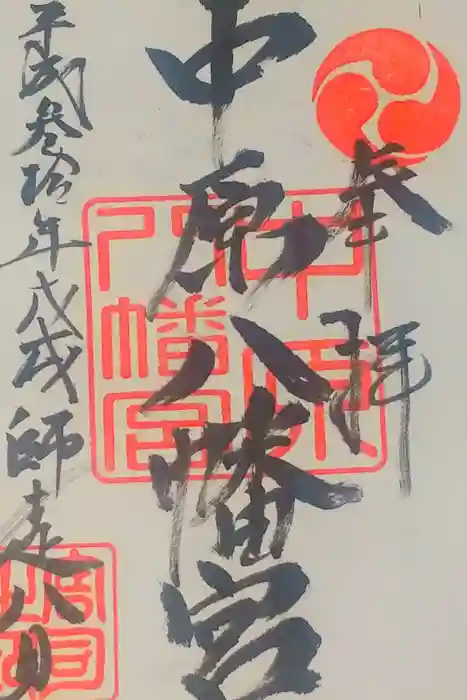 奉拝
中原八幡宮
平成参拾年戊戌師走八日
中原八幡宮